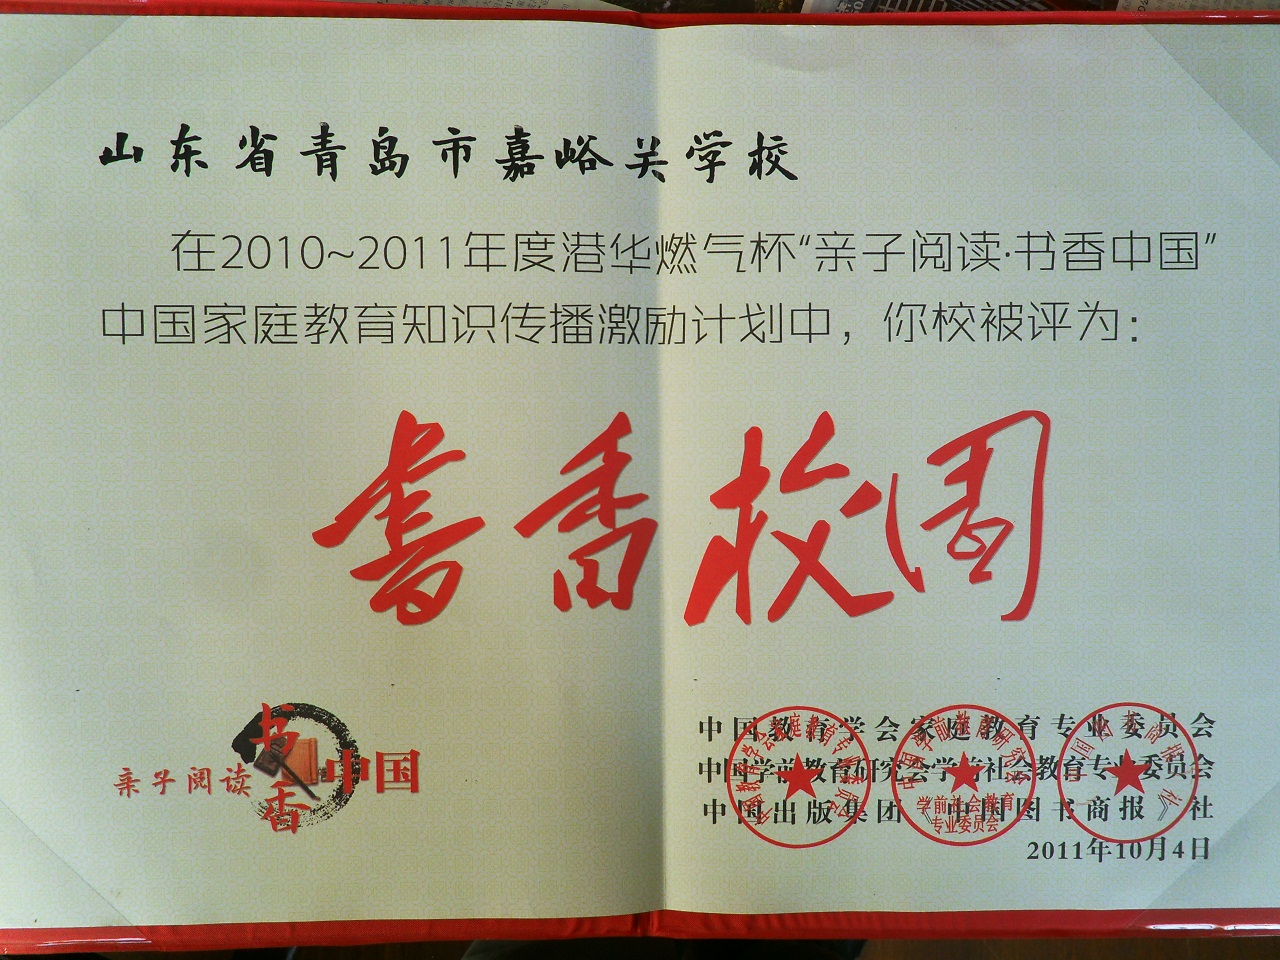 山东省青岛市嘉峪关学校
在2010~2011年度港华燃气杯“亲子阅读·书香中国”
中国家庭教育知识传播激励计划中，你校被评为：
書香校園
亲子阅读 书香 中国
中国教育学会家庭教育专业委员会
中国学前教育研究会学前社会教育专业委员会
中国出版集团《中国图书商报》社
2011年10月4日
中国教育学会家庭教育专业委员会
中国学前教育研究会
学前社会教育
专业委员会
中国图书商报社